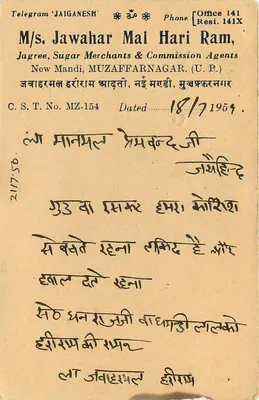 Telegram 'JAIGANESH'
卐 ॐ 卐
Phone [Office 141
Resi. 141X
M/s. Jawahar Mal Hari Ram,
Jagree, Sugar Merchants & Commission Agents
New Mandi, MUZAFFARNAGAR. (U. P.)
जवाहरमल हरीराम आढ़ती, नई मण्डी, मुजफ्फरनगर
C. S. T. No. MZ-154 Dated 18/7 1959
ला मानमल प्रेमचन्द जी
जयहिन्द
गुड वा रसकट हमरा कोशिश
से बेचते रहना ताकिद है और
हवाल देते रहना
सेठ धनराजजी वा लालको
हरीराम की रामराम
ला जवाहरमल हरीराम